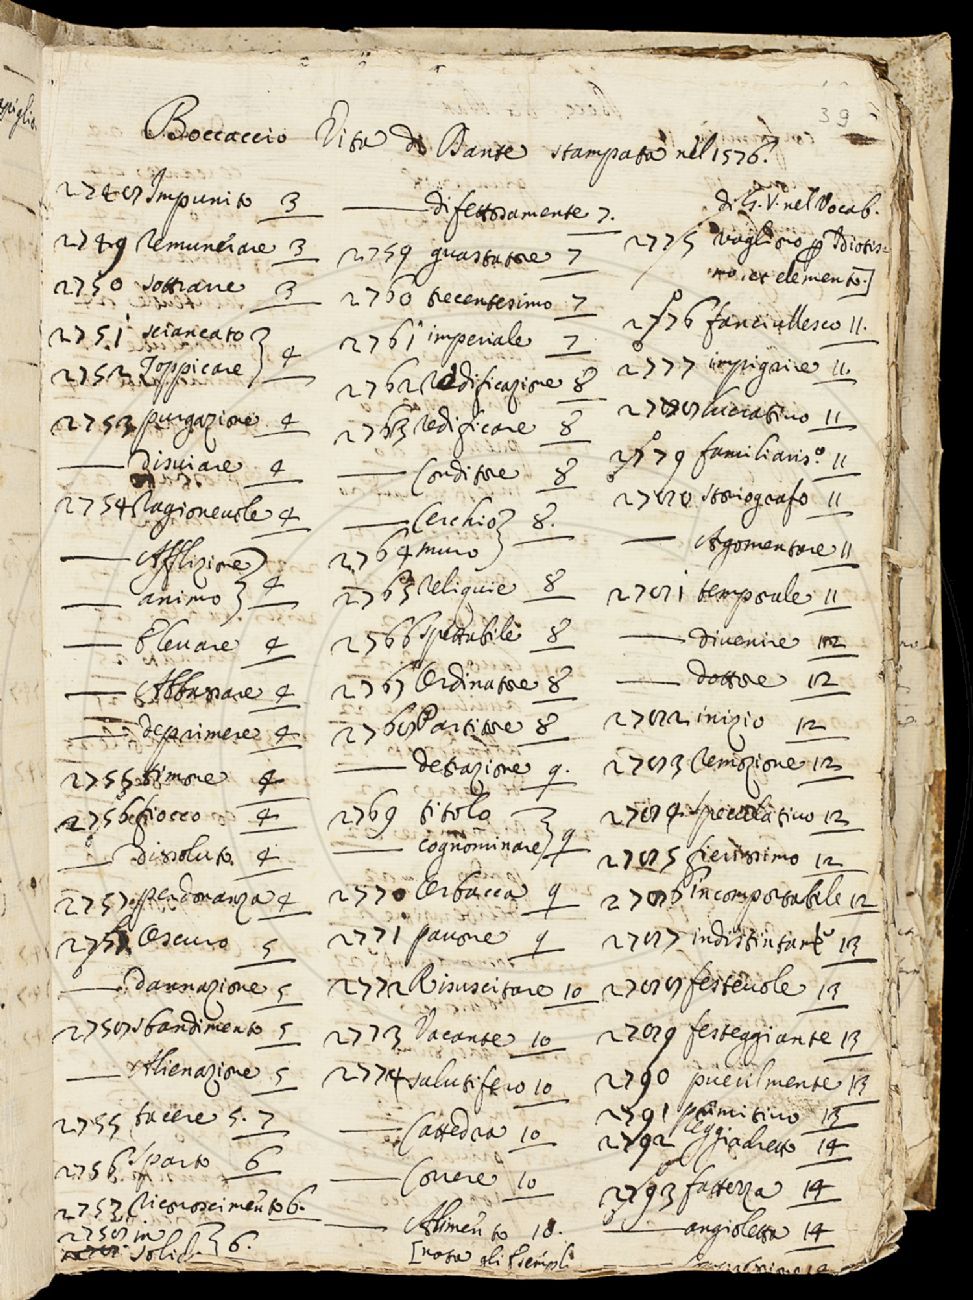 39
Boccaccio Vita di Dante stampata nel 1576.
2748 Impunito 3
2749 Remunerare 3
2750 sottrarre 3
2751 sciancato
2752 Zoppicare } 4
2753 purgazione 4
— Disviare 4
2754 Ragionevole 4
— Afflizione
— animo } 4
— Elevare 4
— Abbassare 4
— deprimere 4
2755 timore 4
2756 fiocco 4
— Dissoluto 4
2757 perdonanza 4
Oscuro 5
— Dannazione 5
2758 sbandimento 5
— Alienazione 5
2755 tacere 5. 7
2756 Sparto 6
2757 Riconoscimento 6.
2758 in
solid. } 6.
— difettosamente 7.
2759 guastatore 7
2760 trecentesimo 7
2761 imperiale 7
2762 Redificazione 8
2763 Redificare 8
— Conditore 8
— Cerchio
2764 muro } 8.
2765 Reliquie 8
2766 Spettabile 8
2767 Ordinatore 8
2768 Partitore 8
— detrazione 9.
2769 titolo
— cognominare } 9
2770 Orbacca 9
2771 pavone 9
2772 Risuscitare 10
2773 Vacante 10
2774 salutifero 10
— Cattedra 10
— Correre 10
— Alimento 10.
[nota gli esempli
di G. V. nel Vocab.
2775 vagliono p Idiotis
mo. et elemento.]
2776 fanciullesco 11.
2777 impigrire 11
2778 lucrativo 11
2779 familiariss.o 11
2780 storiografo 11
— Argomentare 11
2781 temporale 11
— divenire 12
— dottore 12
2782 inizio 12
2783 Remozione 12
2784 speculativo 12
2785 fierissimo 12
2786 incomportabile 12
2787 indistintamte 13
2788 festevole 13
2789 festeggiante 13
2790 puerilmente 13
2791 primitivo 13
2792 leggiadretto 14
2793 fattezza 14
— angioletta 14